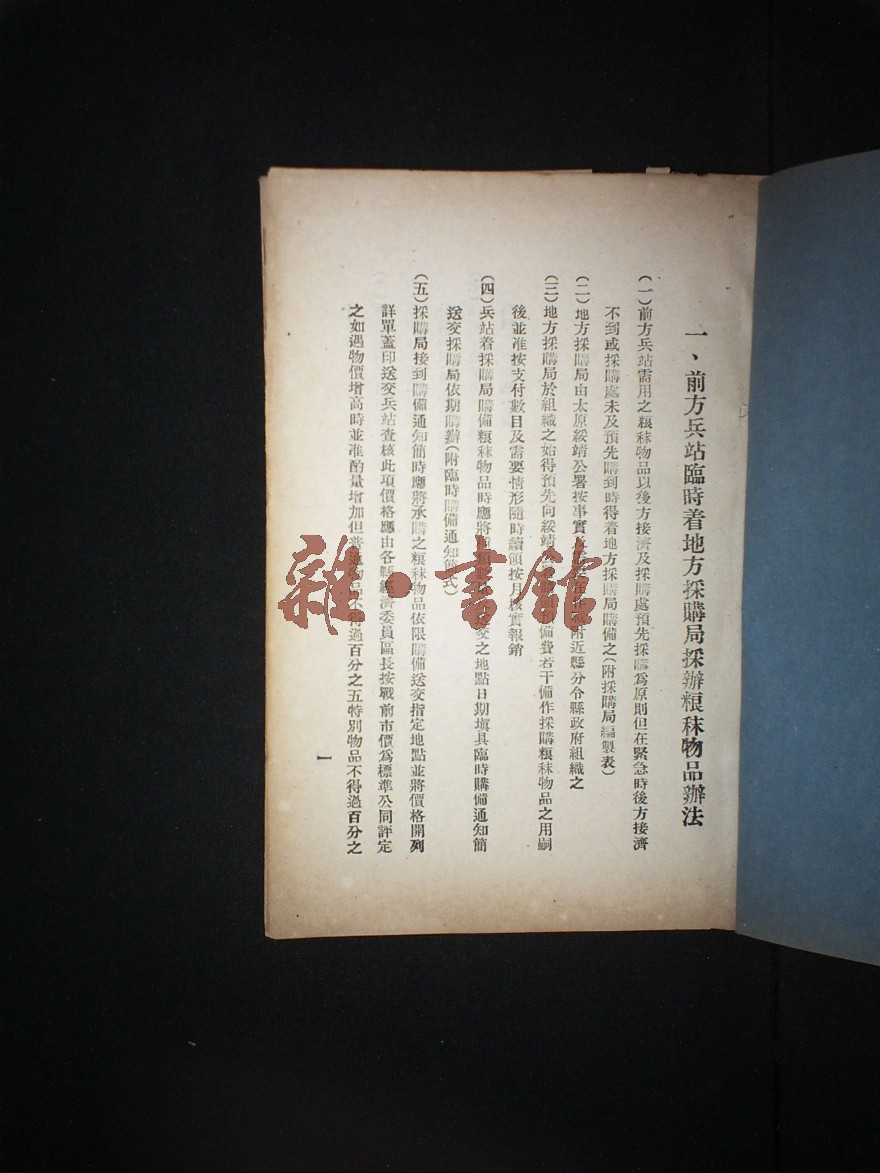 一、前方兵站臨時着地方採購局採辦粮秣物品辦法
(一)前方兵站需用之粮秣物品以後方接濟及採購處預先採購爲原則但在緊急時後方接濟
不到或採購處未及預先購到時得着地方採購局購備之(附採購局編製表)
(二)地方採購局由太原綏靖公署按事實 附近縣分令縣政府組織之
(三)地方採購局於組織之始得預先向綏靖公 備費若干備作採購粮秣物品之用嗣
後並准按支付數目及需要情形隨時續領按月核實報銷
(四)兵站着採購局購備粮秣物品時應將 交之地點日期塡具臨時購備通知簡
送交採購局依期購辦(附臨時購備通知簡式)
(五)採購局接到購備通知簡時應將承購之粮秣物品依限購備送交指定地點並將價格開列
詳單蓋印送交兵站查核此項價格應由各縣經濟委員區長按戰前市價爲標準公同評定
之如遇物價增高時並准酌量增加但普通物品不得過百分之五特別物品不得過百分之
一
雜·書館